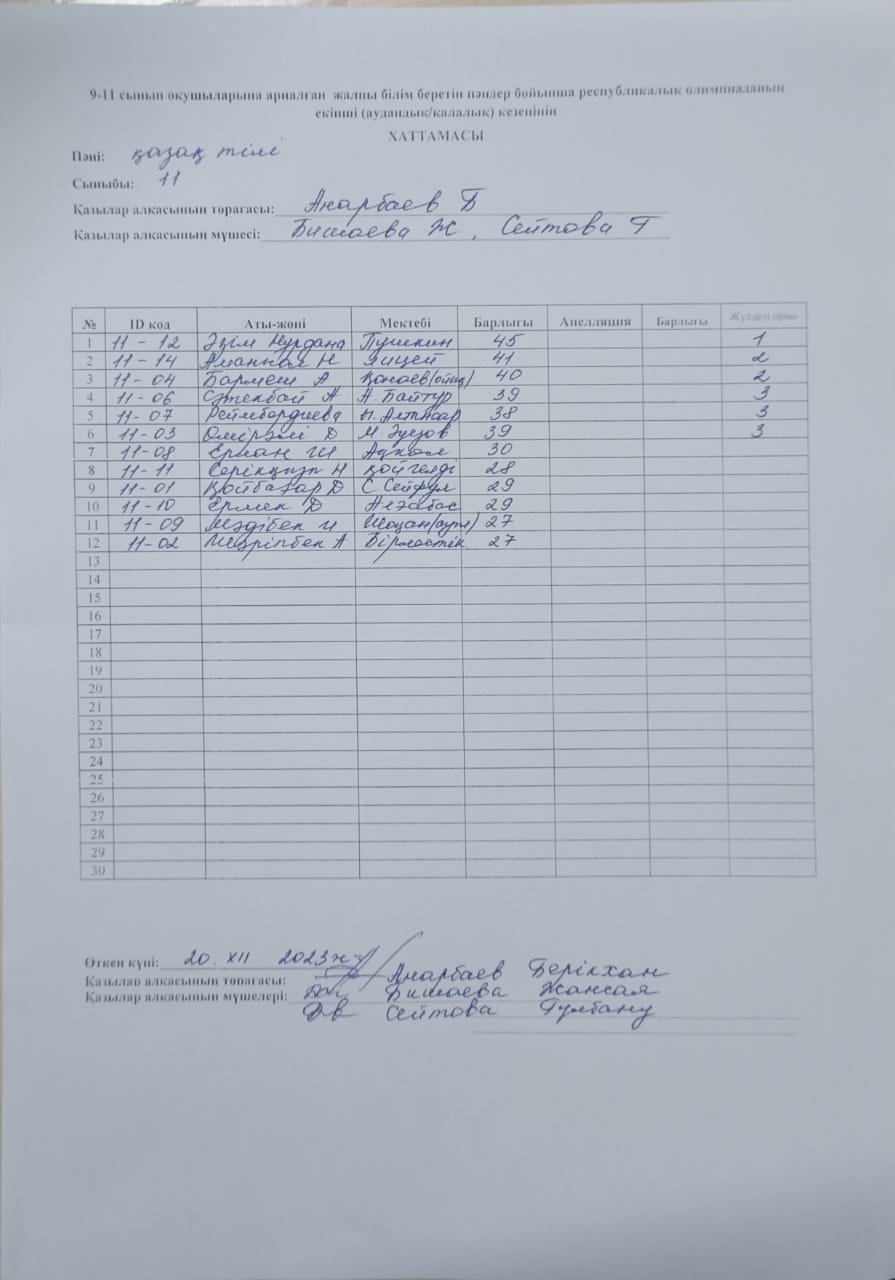 9-11 сынып оқушыларына арналған жалпы білім беретін пәндер бойынша республикалық олимпиаданың
екінші (аудандық/қалалық) кезеңінің
ХАТТАМАСЫ
Пәні: қазақ тілі
Сыныбы: 11
Қазылар алқасының төрағасы: Анарбаев Б
Қазылар алқасының мүшесі: Бишаева Ж, Сейтова Г
№ ID код Аты-жөні Мектебі Барлығы Апелляция Барлығы Жүлделі орны
1 11-12 Әзім Нұрдана Пушкин 45 1
2 11-14 Аманжол Н Лицей 41 2
3 11-04 Бармен А Қонаев 40 2
4 11-06 А А Байтұр 39 3
5 11-07 Реймбердиева Ы. Алтынсар 38 3
6 11-03 Өмірәлі Д М Әуезов 39 3
7 11-08 Ерман Ш 30
8 11-11 Серікқызы Н Қойгелді 28
9 11-01 Қойбағар Д С Сейфул 29
10 11-10 Ермек Д 29
11 11-09 Мәдібек И Шоқан 27
12 11-02 Шәріпбек А Бірлестік 27
13
14
15
16
17
18
19
20
21
22
23
24
25
26
27
28
29
30
Өткен күні: 20. XII 2023ж
Қазылар алқасының төрағасы: Анарбаев Берікхан
Қазылар алқасының мүшелері: Бишаева Жансая
Сейтова Гулбану